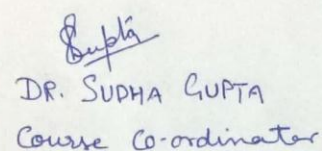 Gupta
DR. SUDHA GUPTA
Course Co-ordinator